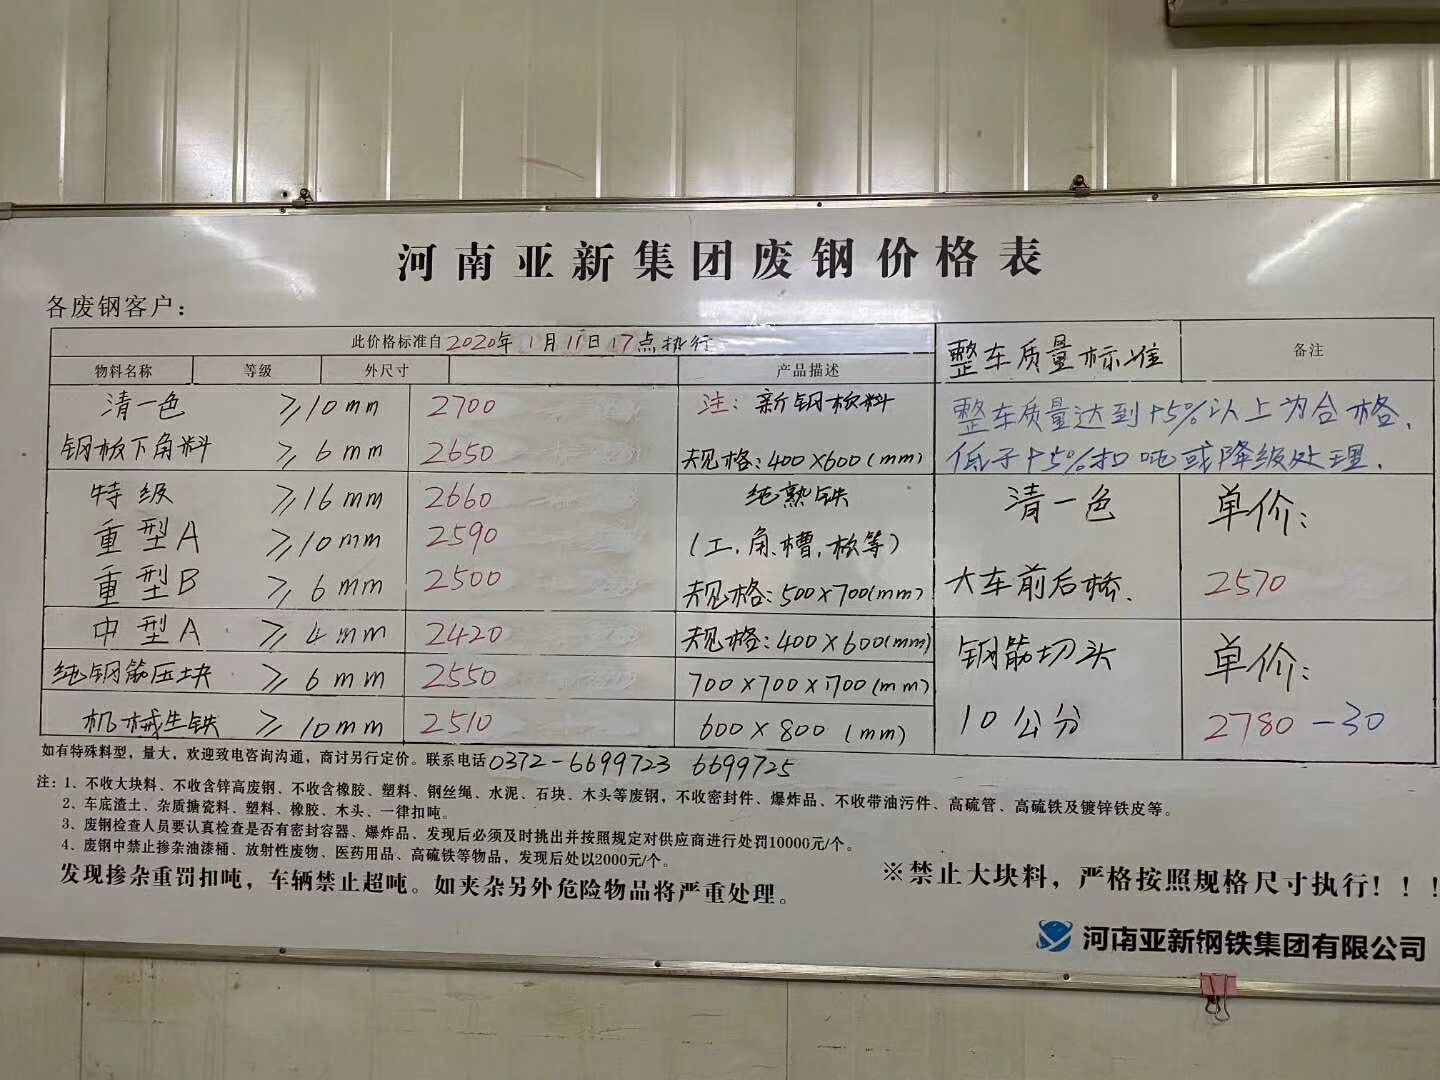 河南亚新集团废钢价格表
各废钢客户：
此价格标准自2020年1月11日17点执行
整车质量标准 备注
物料名称 等级 外尺寸 产品描述
清一色 ≥10mm 2700 注：新钢板料
整车质量达到+5%以上为合格、
钢板下角料 ≥6mm 2650 规格：400×600(mm)
低于+5%扣吨或降级处理.
特级 ≥16mm 2660 纯熟铁
清一色 单价：
重型A ≥10mm 2590 (工、角、槽、板等)
重型B ≥6mm 2500 规格：500×700(mm)
大车前后桥. 2570
中型A ≥4mm 2420 规格：400×600(mm)
钢筋切头 单价：
纯钢筋压块 ≥6mm 2550 700×700×700(mm)
机械生铁 ≥10mm 2510 600×800(mm)
10公分 2780-30
如有特殊料型，量大，欢迎致电咨询沟通，商讨另行定价。联系电话0372-6699723 6699725
注：1、不收大块料、不收含锌高废钢、不收含橡胶、塑料、钢丝绳、水泥、石块、木头等废钢，不收密封件、爆炸品、不收带油污件、高硫管、高硫铁及镀锌铁皮等。
2、车底渣土、杂质搪瓷料、塑料、橡胶、木头、一律扣吨。
3、废钢检查人员要认真检查是否有密封容器、爆炸品、发现后必须及时挑出并按照规定对供应商进行处罚10000元/个。
4、废钢中禁止掺杂油漆桶、放射性废物、医药用品、高硫铁等物品，发现后处以2000元/个。
发现掺杂重罚扣吨，车辆禁止超吨。如夹杂另外危险物品将严重处理。
※禁止大块料，严格按照规格尺寸执行！！！
河南亚新钢铁集团有限公司